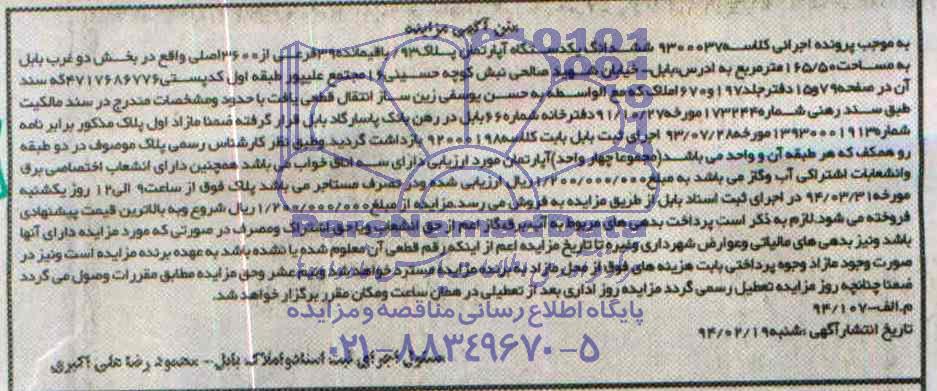 متن آگهی مزایده
به موجب پرونده اجرائی کلاسه ۹۳۰۰۰۳۷ ششدانگ یکدستگاه آپارتمان پلاک ۹۳ باقیمانده ۳۹ فرعی از ۳۶۰۰ اصلی واقع در بخش دو غرب بابل
به مساحت ۱۶۵/۵۰ مترمربع به ادرس: بابل- خیابان شهید صالحی نبش کوچه حسینی ۱۶ مجتمع علیپور طبقه اول کدپستی ۴۷۱۷۶۸۶۷۷۶ که سند
آن در صفحه ۷۹ و ۱۵ دفتر جلد ۱۹۷ و ۶۷۰ املاک که مع الواسطه به حسن یوسفی زین ساز انتقال قطعی یافت با حدود ومشخصات مندرج در سند مالکیت
طبق سند رهنی شماره ۱۷۳۲۴۴ مورخه ۹۱/۱۰/۲۷ دفترخانه شماره ۶۶ بابل در رهن بانک پاسارگاد بابل قرار گرفته ضمنا مازاد اول پلاک مذکور برابر نامه
شماره ۱۳۹۳۰۰۰۱۹۱۳ مورخه ۹۳/۰۷/۲۸ اجرای ثبت بابل بابت کلاسه ۹۲۰۰۱۹۸ بازداشت گردید وطبق نظر کارشناس رسمی پلاک موصوف در دو طبقه
رو همکف که هر طبقه آن و واحد می باشد (مجموعا چهار واحد) آپارتمان مورد ارزیابی دارای سه اتاق خواب می باشد همچنین دارای انشعاب اختصاصی برق
وانشعابات اشتراکی آب وگاز می باشد به مبلغ ۱/۲۰۰/۰۰۰/۰۰۰ ریال ارزیابی شده ودر تصرف مستاجر می باشد پلاک فوق از ساعت ۹ الی ۱۲ روز یکشنبه
مورخه ۹۴/۰۳/۳۱ در اجرای ثبت اسناد بابل از طریق مزایده به فروش می رسد. مزایده از مبلغ ۱/۲۰۰/۰۰۰/۰۰۰ ریال شروع وبه بالاترین قیمت پیشنهادی
فروخته می شود. لازم به ذکر است پرداخت بدهی های مربوط به آب، برق، گاز اعم از حق انشعاب ویا حق اشتراک ومصرف در صورتی که مورد مزایده دارای آنها
باشد ونیز بدهی های مالیاتی وعوارض شهرداری وغیره تا تاریخ مزایده اعم از اینکه رقم قطعی آن معلوم شده یا نشده باشد به عهده برنده مزایده است ونیز در
صورت وجود مازاد وجوه پرداختی بابت هزینه های فوق از محل مازاد به برنده مزایده مسترد خواهد شد ونیم عشر وحق مزایده مطابق مقررات وصول می گردد
ضمنا چنانچه روز مزایده تعطیل رسمی گردد مزایده روز اداری بعد از تعطیلی در همان ساعت ومکان مقرر برگزار خواهد شد.
م.الف-۹۴/۱۰۷
پایگاه اطلاع رسانی مناقصه و مزایده
تاریخ انتشار آگهی: شنبه ۹۴/۰۲/۱۹
۰۲۱-۸۸۳۴۹۶۷۰-۵
مسئول اجرای ثبت اسناد واملاک بابل- محمود رضا علی اکبری